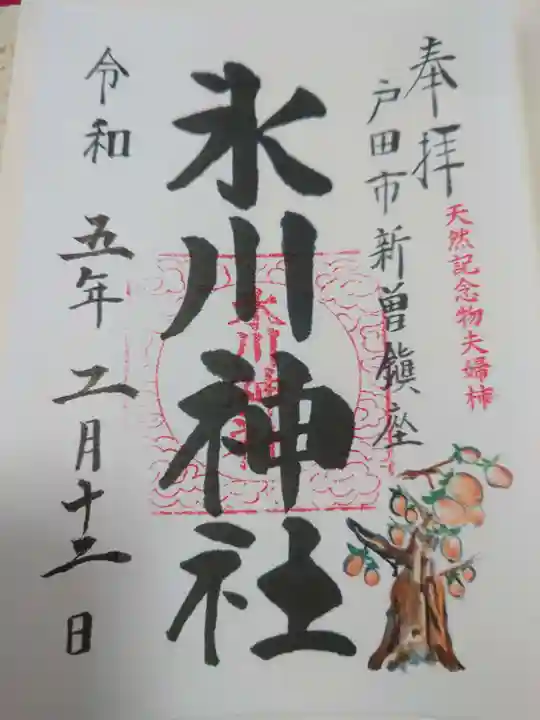 奉拝
天然記念物夫婦柿
戸田市新曽鎮座
氷川神社
氷川神社
令和五年二月十三日